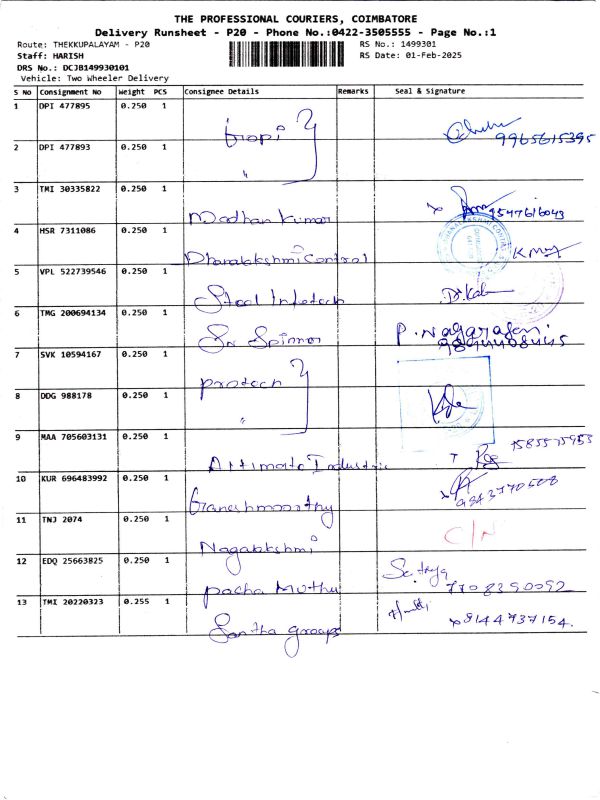 THE PROFESSIONAL COURIERS, COIMBATORE
Delivery Runsheet - P20 - Phone No.:0422-3505555 - Page No.:1
Route: THEKKUPALAYAM - P20
RS No.: 1499301
Staff: HARISH
RS Date: 01-Feb-2025
DRS No.: DCJB149930101
Vehicle: Two Wheeler Delivery
S No Consignment No Weight PCS Consignee Details Remarks Seal & Signature
1 DPI 477895 0.250 1 Gopi
9965615395
2 DPI 477893 0.250 1 "
3 TMI 30335822 0.250 1 Madhan Kumar
9547616043
4 HSR 7311086 0.250 1 Dhanalakshmi Control
5 VPL 522739546 0.250 1 Steel Infotech
6 TMG 200694134 0.250 1 Sri Spinner P. Nagarajan
7 SVK 10594167 0.250 1 Protech
8 DDG 988178 0.250 1 "
9 MAA 705603131 0.250 1 Altimate Industric
10 KUR 696483992 0.250 1 Ganeshmoorthy
9843770508
11 TNJ 2074 0.250 1 Nagalakshmi C/N
12 EDQ 25663825 0.250 1 Pacha Muthu Sathya
7708390092
13 TMI 20220323 0.255 1 Santha groups
9144737154.